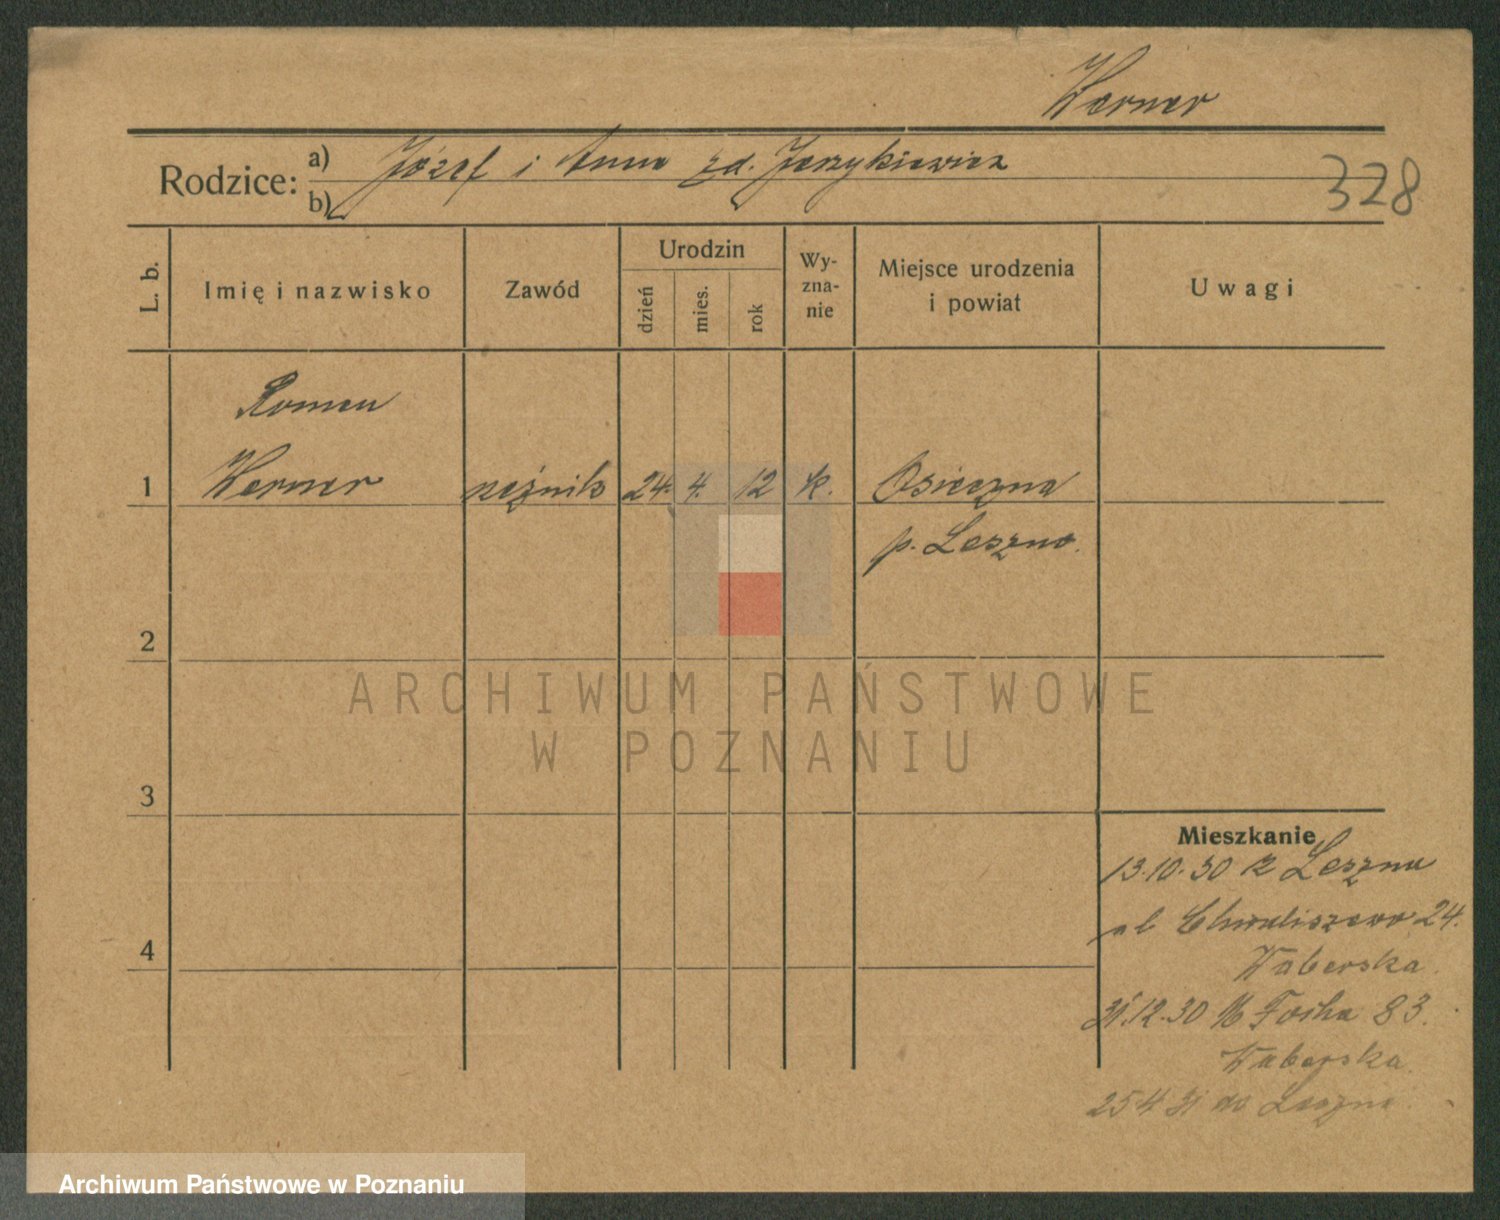 Werner
Rodzice: a) Józef i Anna zd. Jerzykiewicz
b)
328
L. b.
Imię i nazwisko
Zawód
Urodzin
dzień
mies.
rok
Wy-
zna-
nie
Miejsce urodzenia
i powiat
Uwagi
Roman
1 Werner rzeźnik 24. 4. 12 k. Osieczna
p. Leszno.
2
3
4
Mieszkanie
13.10.30 z Leszna
ul Chwaliszewo 24.
Waberska.
31.12.30 M Focha 83.
Waberska.
25 4 31 do Leszna.
ARCHIWUM PAŃSTWOWE
W POZNANIU
Archiwum Państwowe w Poznaniu